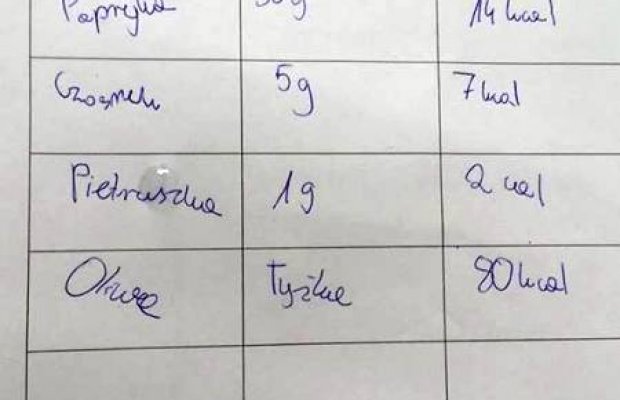 Papryka 14 kcal
Czosnek 5g 7 kcal
Pietruszka 1g 2 kcal
Oliwa łyżka 80 kcal